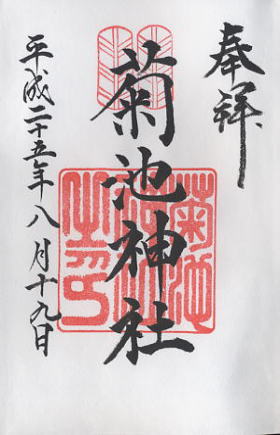 奉拝
菊池神社
平成二十五年八月十九日